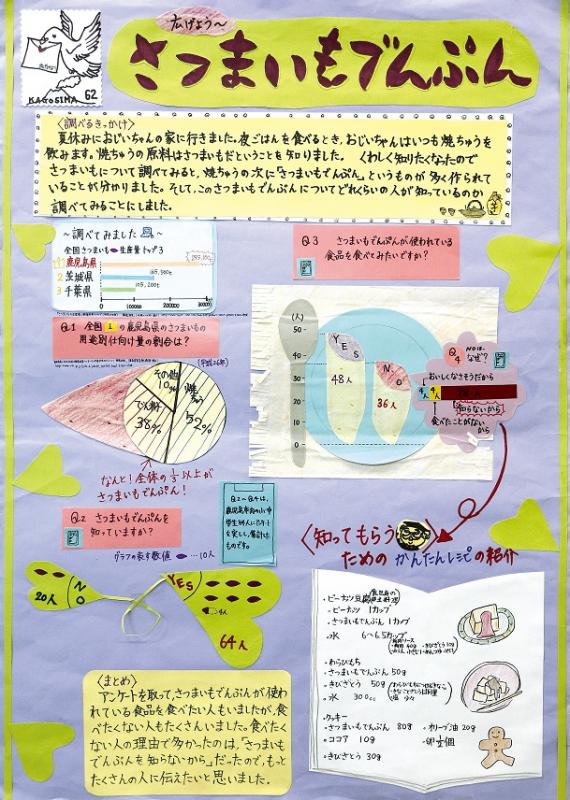 広げよう～
さつまいもでんぷん
KAGOSIMA 62
〈調べるきっかけ〉
夏休みにおじいちゃんの家に行きました。夜ごはんを食べるとき、おじいちゃんはいつも焼ちゅうを
飲みます。焼ちゅうの原料はさつまいもだということを知りました。くわしく知りたくなったので
さつまいもについて調べてみると、焼ちゅうの次に「さつまいもでんぷん」というものが多く作られて
いることが分かりました。そして、このさつまいもでんぷんについてどれくらいの人が知っているのか
調べてみることにしました。
～調べてみました
全国さつまいも生産量トップ3
1 鹿児島県
2 茨城県
3 千葉県
0 100000 200000 300000
Q.1 全国1の鹿児島県のさつまいもの
用途別仕向け量の割合は?
(平成26年)
その他
10%
焼ちゅう
52%
でん粉
38%
なんと!全体の1/3以上が
さつまいもでんぷん!
Q.2 さつまいもでんぷんを
知っていますか?
Q.2～Q.4は、
グラフの表す数値 …10人
20人
NO
YES
…4人
64人
Q3 さつまいもでんぷんが使われている
食品を食べてみたいですか?
(人)
50
40
30
20
10
0
YES
48人
NO
36人
Q4 NOは、なぜ?
おいしくなさそうだから
4人
4人
28人
知らないから
食べたことがない
から
〈知ってもらう
ための かんたんレシピの紹介
・ピーナツ豆腐
・ピーナツ 1カップ
・さつまいもでんぷん 1カップ
・水 6～6.5カップ
・わらびもち
・さつまいもでんぷん 50g
・きびざとう 50g
・水 300cc
・クッキー
・さつまいもでんぷん 80g ・オリーブ油 20g
・ココア 10g ・卵 1/2個
・きびざとう 30g
〈まとめ〉
アンケートを取って、さつまいもでんぷんが使わ
れている食品を食べたい人もいましたが、食
べたくない人もたくさんいました。食べたく
ない人の理由で多かったのは、「さつまいも
でんぷんを知らないから」だったので、もっと
たくさんの人に伝えたいと思いました。